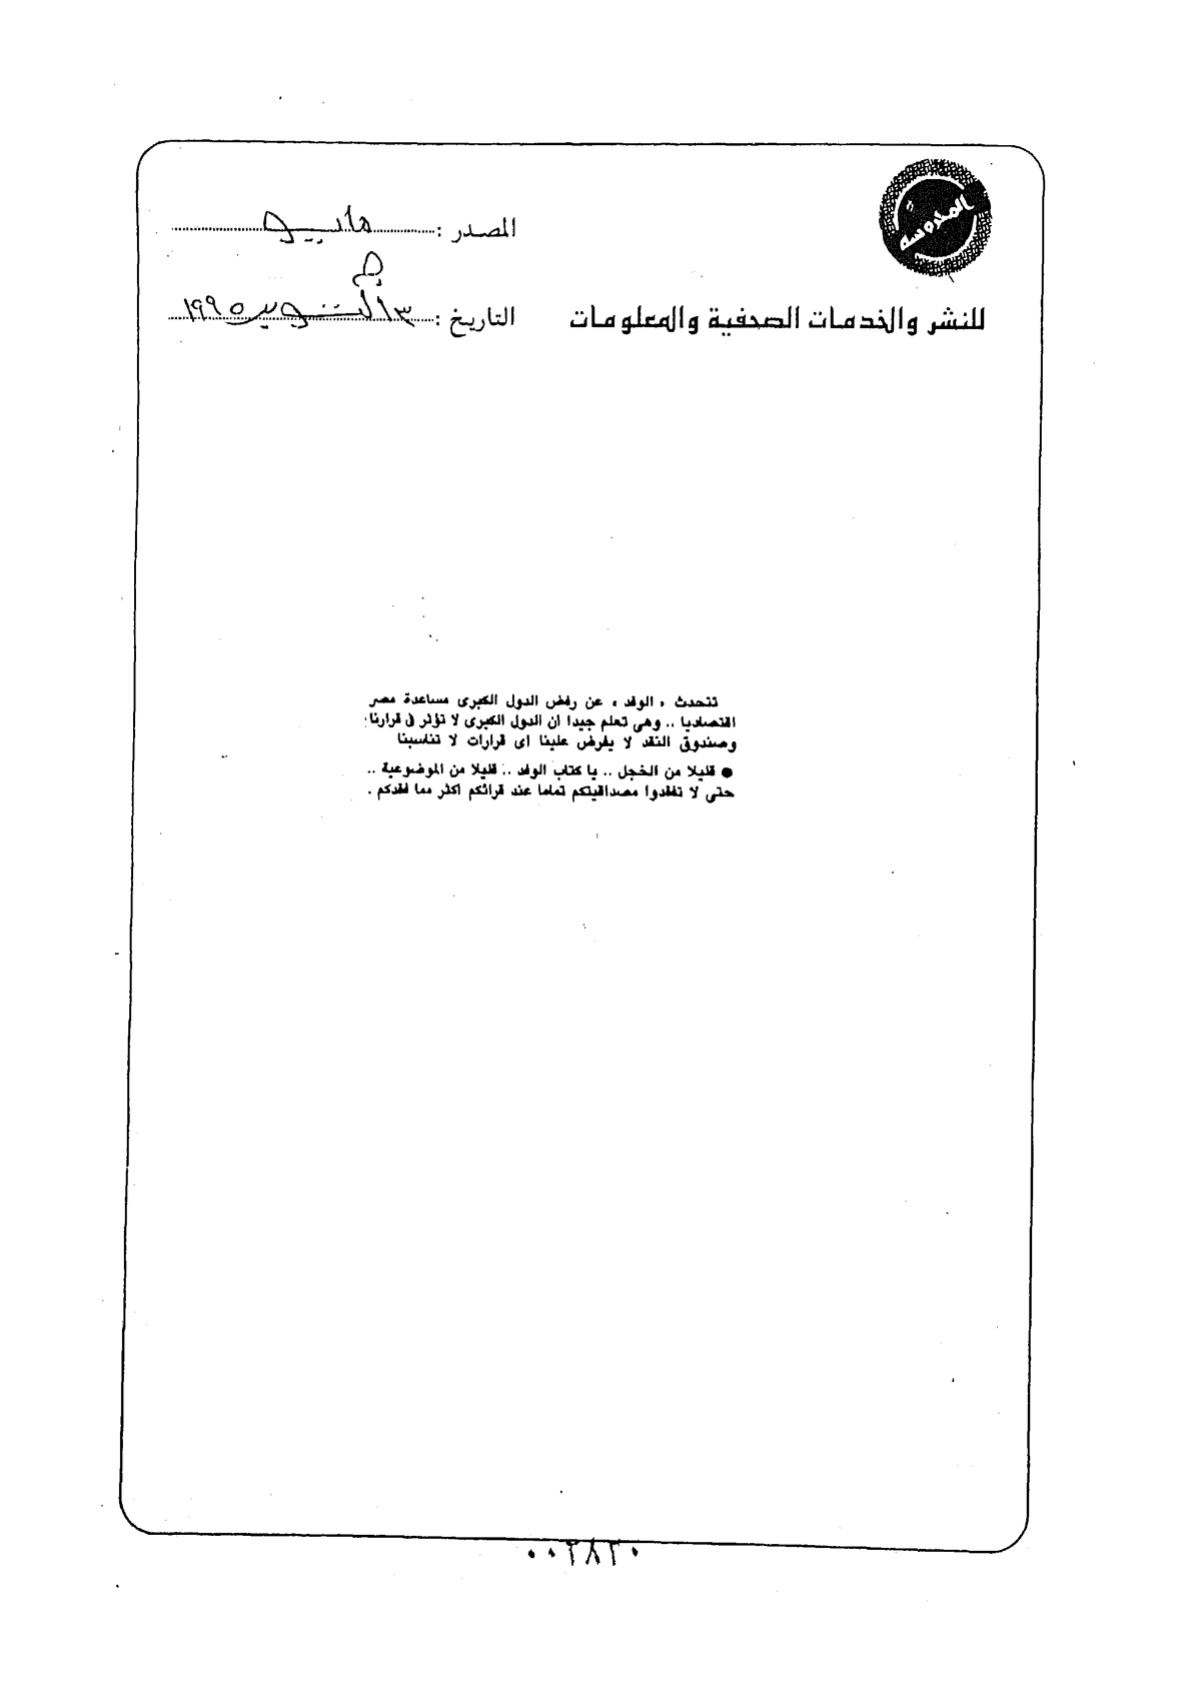 المحروسة
المصدر : مايو
للنشر والخدمات الصحفية والمعلومات
التاريخ : ٣ أكتوبر ١٩٩٥
تتحدث « الوفد » عن رفض الدول الكبرى مساعدة مصر
اقتصاديا .. وهى تعلم جيدا ان الدول الكبرى لا تؤثر فى قرارنا
وصندوق النقد لا يفرض علينا اى قرارات لا تناسبنا
● قليلا من الخجل .. يا كتاب الوفد .. قليلا من الموضوعية ..
حتى لا تفقدوا مصداقيتكم تماما عند قرائكم اكثر مما فقدكم .